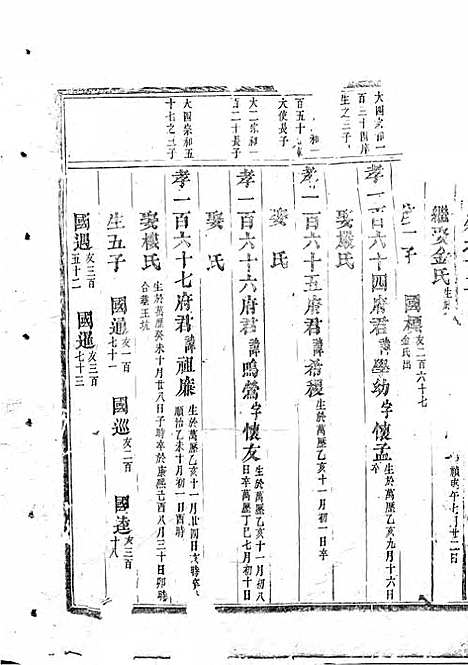 繼娶金氏
頴時午七月廿二日
大四宗和一
百三十四府
生之三子
孝一百六十四府君諱學幼字懷孟
生於萬歷乙亥九月十六日
卒
娶樓氏
生一子 國標亥二百六十七
金氏出
和二
百五十
大使長子
孝一百六十五府君諱希稷
生於萬歷乙亥十一月初一日卒
娶 氏
大二宗和一
百二十長子
孝一百六十六府君諱鳴鶯字懷友
生於萬歷乙亥十一月初八
日卒萬歷丁巳七月初十日
娶 氏
大四宗和五
十七之三子
孝一百六十七府君諱祖廉
生於萬歷乙亥十一月廿四日亥時卒
順治乙未十月初一日酉時
娶樓氏
生於萬歷癸未十月廿八日子時卒於康熙己酉八月三十日卯時
合葬王坑
生五子 國通亥一百七十一 國巡亥二百 國逵亥三百十八
國遇亥三百五十二 國進亥三百七十三